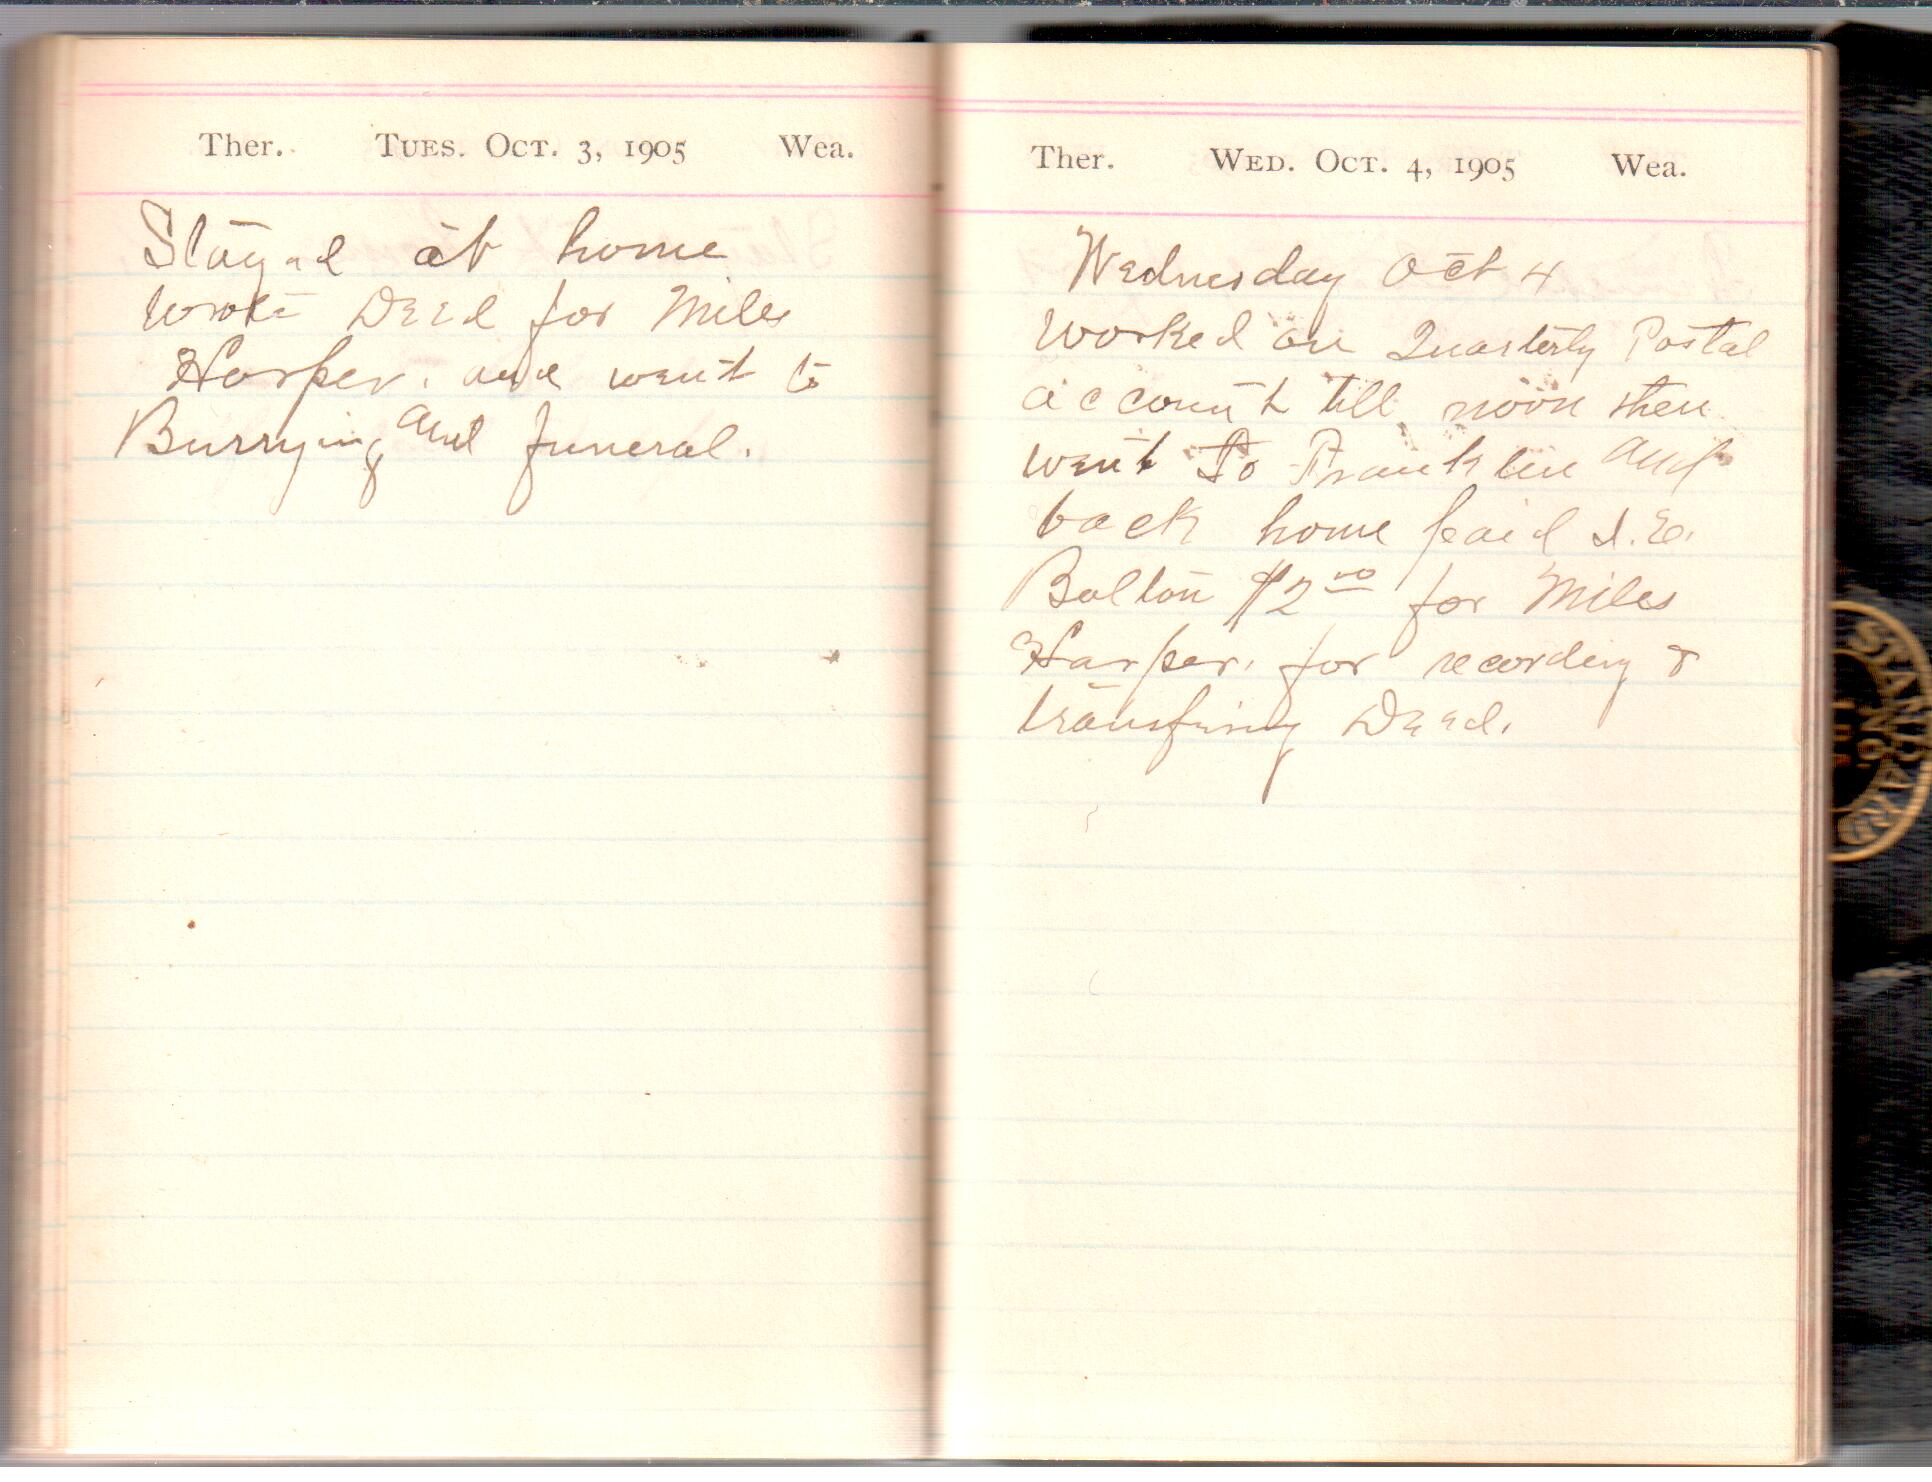 Ther. Tues. Oct. 3, 1905 Wea.
Stayed at home
wrote Deed for Miles
Harper. and went to
Burrying and funeral.
Ther. Wed. Oct. 4, 1905 Wea.
Wednesday Oct 4
Worked on Quarterly Postal
account till noon then
went to Franklin and
back home paid I.E.
Bolton $2 00 for Miles
Harper. for recording &
transfiring Deed.
STANDARD
NO.